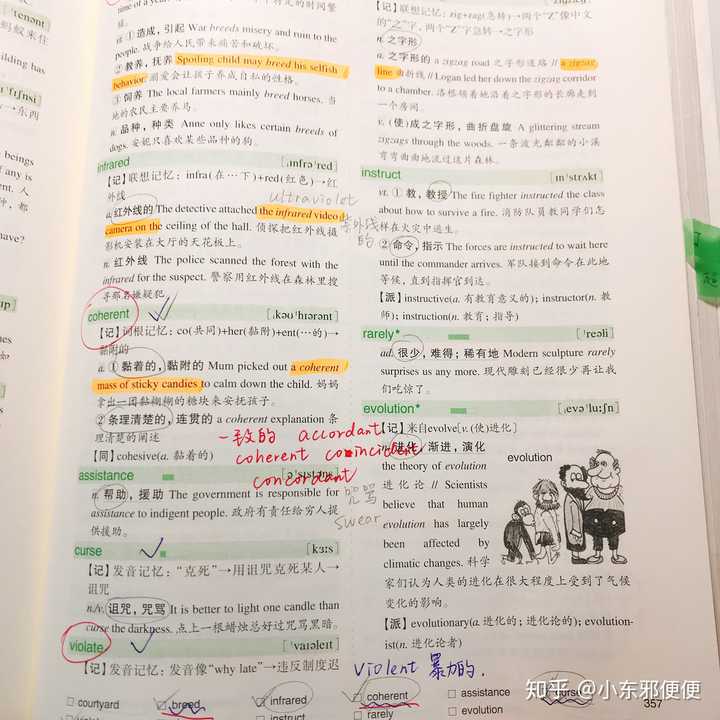 time of a year
vt. ① 造成,引起 War breeds misery and ruin to the
people. 战争给人民带来痛苦和破坏。
② 教养,抚养 Spoiling child may breed his selfish
behavior. 溺爱会让孩子养成自私的性格。
③ 饲养 The local farmers mainly breed horses. 当
地的农民主要养马。
n. 品种,种类 Anne only likes certain breeds of
dogs. 安妮只喜欢某些品种的狗。
infrared [ˌɪnfrəˈred]
【记】联想记忆:infra(在…下)+red(红色)→红
外线
ultraviolet
a. 红外线的 The detective attached the infrared video
camera on the ceiling of the hall. 侦探把红外线摄
影机安装在大厅的天花板上。
紫外线
的
n. 红外线 The police scanned the forest with the
infrared for the suspect. 警察用红外线在森林里搜
寻那名嫌疑犯。
coherent [ˌkəʊˈhɪərənt]
【记】词根记忆:co(共同)+her(黏附)+ent(…的)→
黏附的
a. ① 黏着的,黏附的 Mum picked out a coherent
mass of sticky candies to calm down the child. 妈妈
拿出一团黏糊糊的糖块来安抚孩子。
② 条理清楚的,连贯的 a coherent explanation 条
理清楚的阐述
【同】cohesive(a. 黏着的)
一致的 accordant
coherent coincident
concordant
assistance [əˈsɪstəns]
n. 帮助,援助 The government is responsible for
assistance to indigent people. 政府有责任给穷人提
供援助。
咒骂
swear
curse [kɜːs]
【记】发音记忆:“克死”→用诅咒克死某人→
诅咒
n./v. 诅咒,咒骂 It is better to light one candle than
curse the darkness. 点上一根蜡烛总好过咒骂黑暗。
violate [ˈvaɪəleɪt]
【记】发音记忆:发音像“why late”→违反制度迟
violent 暴力的.
【记】联想记忆:zig+zag(急转)→两个“Z”像中文
的“之”字,两个“Z”字急转→之字形
n. 之字形
a. 之字形的 a zigzag road 之字形道路 // a zigzag
line 曲折线 // Logan led her down the zigzag corridor
to a chamber. 洛根领着她沿着之字形的长廊走到
一个房间。
v. (使)成之字形,曲折盘旋 A glittering stream
zigzags through the woods. 一条波光粼粼的小溪
弯弯曲曲地流过这片森林。
instruct [ɪnˈstrʌkt]
vt. ① 教,教授 The fire fighter instructed the class
about how to survive a fire. 消防队员教同学们怎
样在火灾中逃生。
② 命令,指示 The forces are instructed to wait here
until the commander arrives. 军队接到命令在此地
等候,直到指挥官到达。
【派】instructive(a. 有教育意义的); instructor(n. 教
师); instruction(n. 教育;指导)
rarely* [ˈreəli]
ad. 很少,难得;稀有地 Modern sculpture rarely
surprises us any more. 现代雕刻已经很少再让我
们吃惊了。
evolution* [ˌevəˈluːʃn]
【记】来自evolve[v. (使)进化]
n. 进化,渐进,演化
the theory of evolution
进化论 // Scientists
believe that human
evolution has largely
been affected by
climatic changes. 科学
家们认为人类的进化在很大程度上受到了气候
变化的影响。
evolution
【派】evolutionary(a. 进化的;进化论的); evolution-
ist(n. 进化论者)
□ courtyard □ breed □ infrared □ coherent □ assistance □ curse
□ violate □ instruct □ rarely □ evolution
357
知乎 @小东邪便便